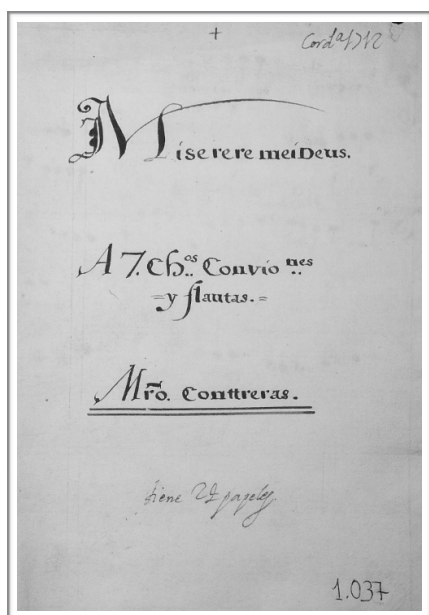 +
Cord.ª 1712
Miserere mei Deus.
A 7. Ch.os Con vio.nes
=y flautas.=
Mro. Conttreras.
tiene papeles
1.037